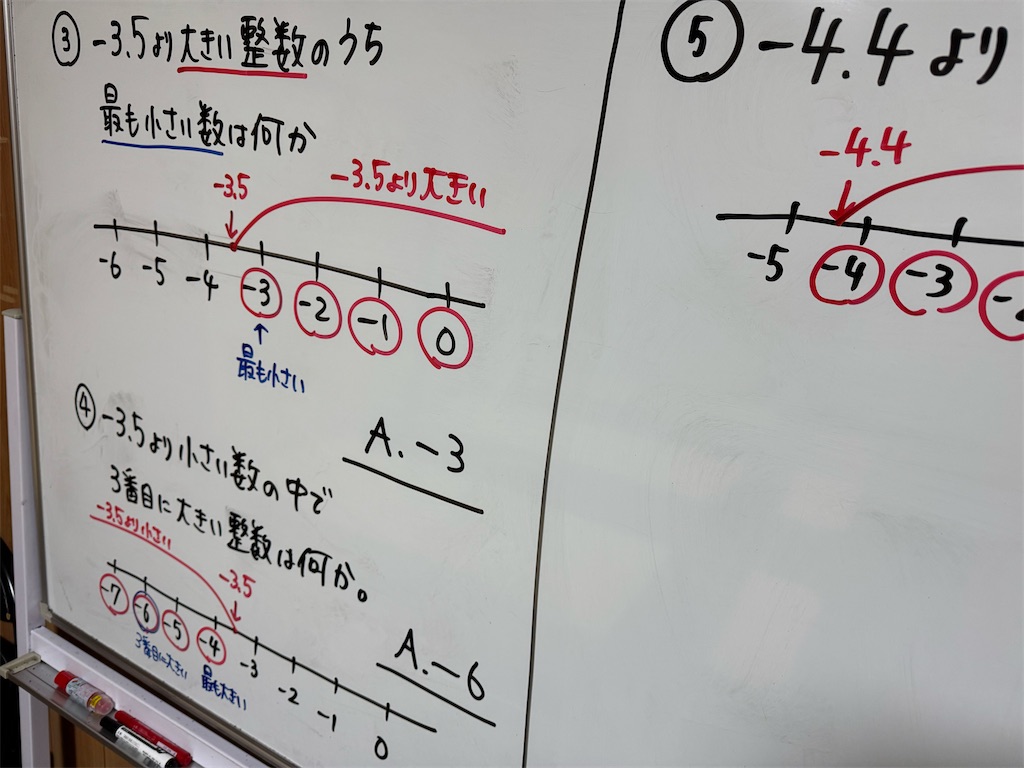 ③ -3.5より大きい整数のうち
最も小さい数は何か
-3.5 -3.5より大きい
-6 -5 -4 -3 -2 -1 0
最も小さい
A. -3
④ -3.5より小さい数の中で
3番目に大きい整数は何か。
-3.5より小さい
-3.5
-7 -6 -5 -4 -3 -2 -1 0
3番目に大きい 最も大きい
A. -6
⑤ -4.4より
-4.4
-5 -4 -3